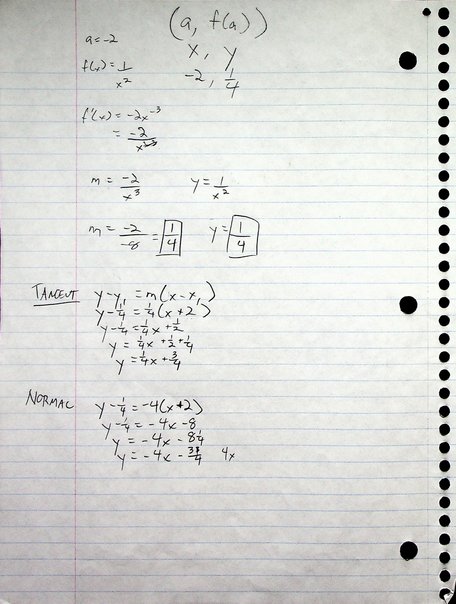 (a, f(a))
a = -2
x, y
f(x) = 1/x²
-2, 1/4
f'(x) = -2x⁻³
= -2/x³
m = -2/x³ y = 1/x²
m = -2/-8 = 1/4 y = 1/4
TANGENT y-y₁ = m(x-x₁)
y-1/4 = 1/4(x+2)
y-1/4 = 1/4x + 1/2
y = 1/4x + 1/2 + 1/4
y = 1/4x + 3/4
NORMAL y-1/4 = -4(x+2)
y-1/4 = -4x-8
y = -4x - 8 1/4
y = -4x - 31/4 4x